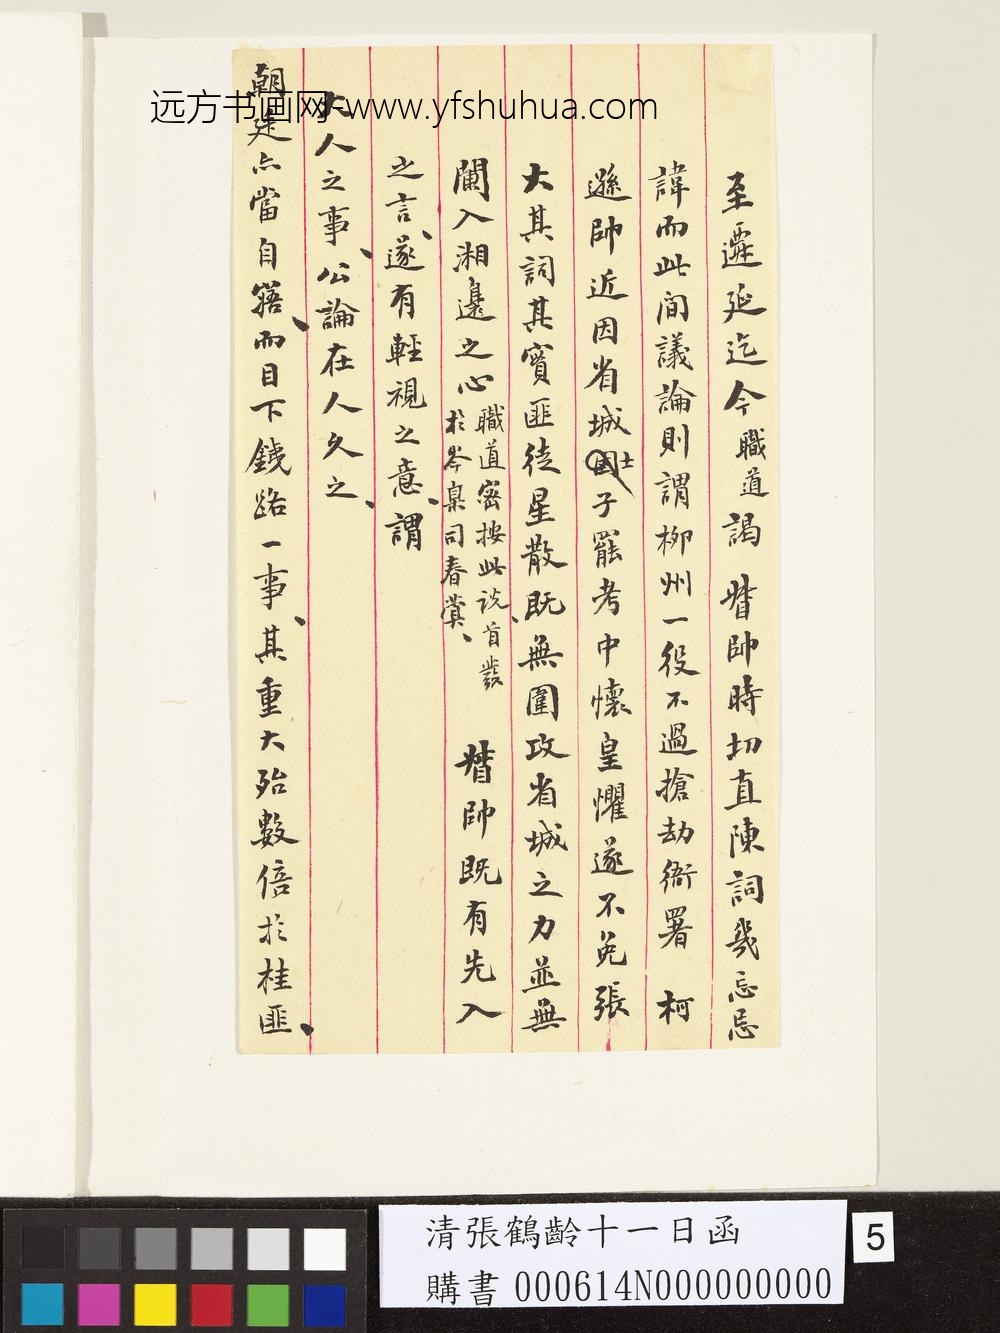 远方书画网-www.yfshuhua.com
至遷延迄今職道謁 督帥時切直陳詞幾忘忌
諱而此间議論則謂柳州一役不過搶劫衙署 柯
遜帥近因省城士子罷考中懷皇懼遂不免張
大其詞其實匪徒星散既無圍攻省城之力並無
闌入湘邊之心職道密按此说首發於岑臬司春蓂 督帥既有先入
之言遂有輕視之意謂
大人之事公論在人久之
朝廷亦當自寤而目下錢路一事其重大殆數倍於桂匪
清張鶴齡十一日函
購書 000614N000000000
5